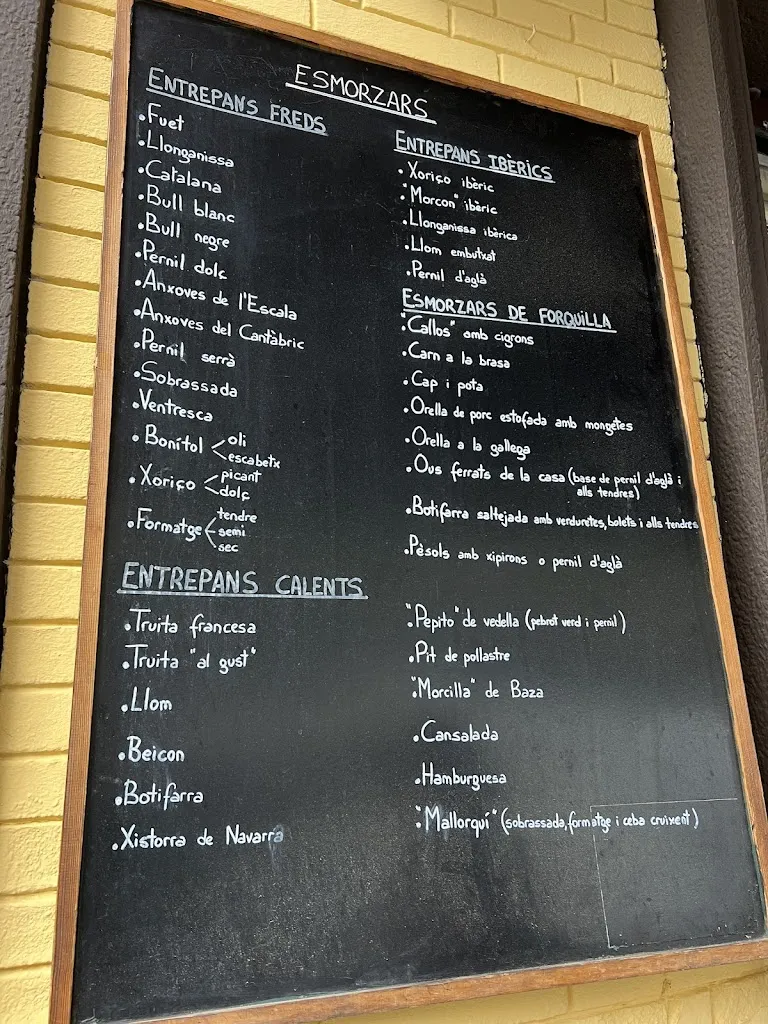 ESMORZARS
ENTREPANS FREDS
.Fuet
.Llonganissa
.Catalana
.Bull blanc
.Bull negre
.Pernil dolç
.Anxoves de l'Escala
.Anxoves del Cantàbric
.Pernil serrà
.Sobrassada
.Ventresca
.Bonítol < oli
escabetx
.Xoriço < picant
dolç
.Formatge < tendre
semi
sec
ENTREPANS CALENTS
.Truita francesa
.Truita "al gust"
.Llom
.Beicon
.Botifarra
.Xistorra de Navarra
ENTREPANS IBÈRICS
.Xoriço ibèric
."Morcon" ibèric
.Llonganissa ibèrica
.Llom embutxat
.Pernil d'aglà
ESMORZARS DE FORQUILLA
."Callos" amb cigrons
.Carn a la brasa
.Cap i pota
.Orella de porc estofada amb mongetes
.Orella a la gallega
.Ous ferrats de la casa (base de pernil d'aglà i
alls tendres)
.Botifarra saltejada amb verduretes, bolets i alls tendres
.Pèsols amb xipirons o pernil d'aglà
."Pepito" de vedella (pebrot verd i pernil)
.Pit de pollastre
."Morcilla" de Baza
.Cansalada
.Hamburguesa
."Mallorquí" (sobrassada, formatge i ceba cruixent)